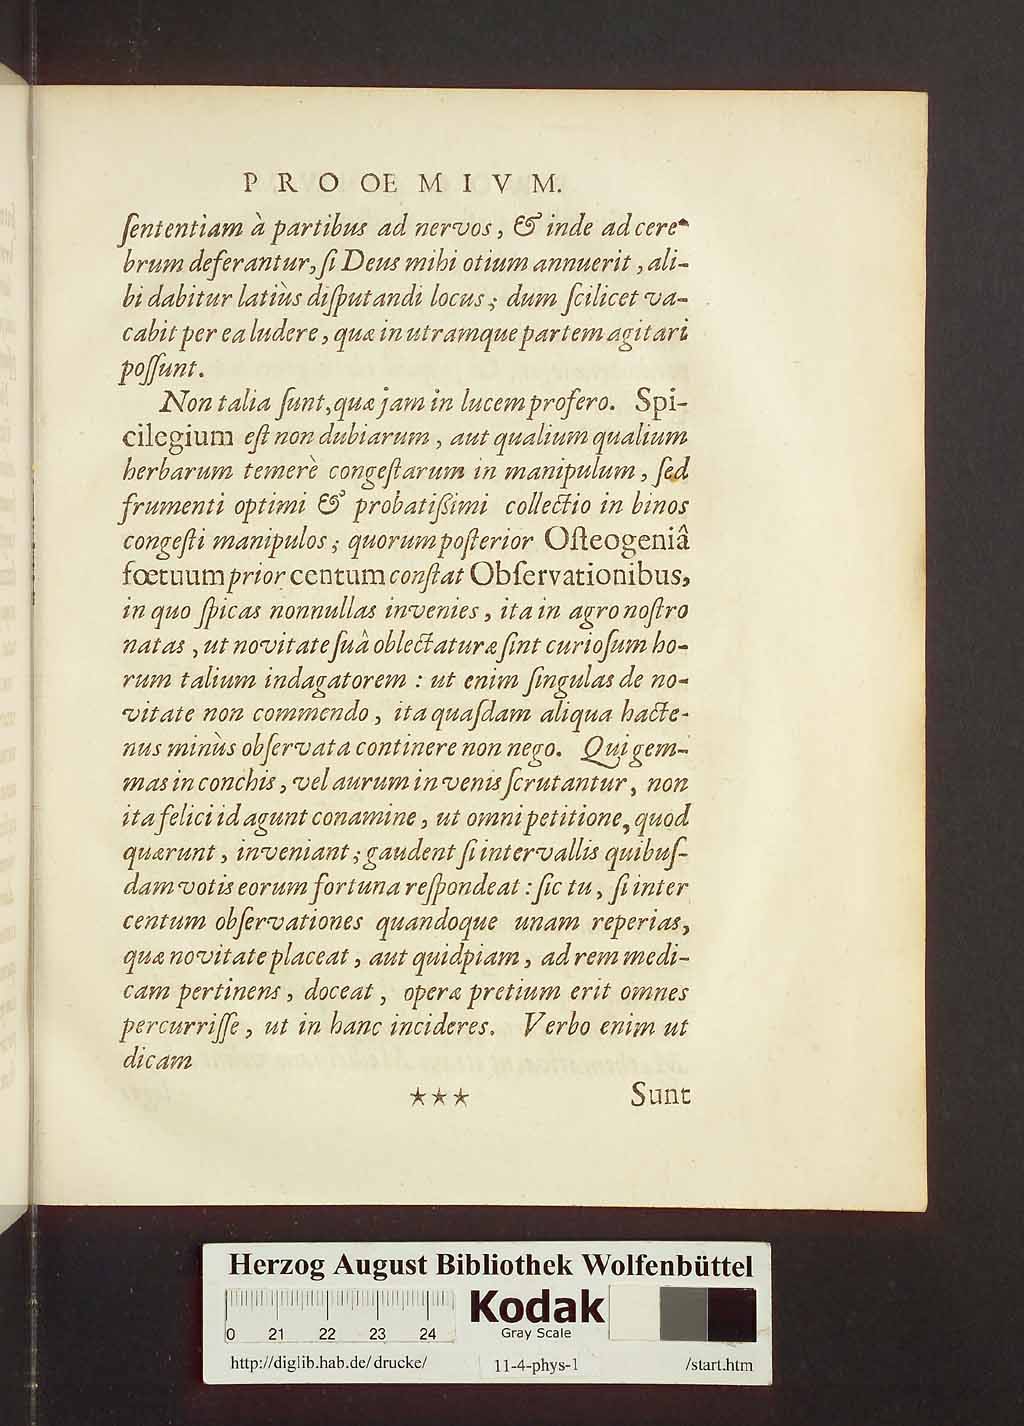 PROOEMIVM.
ſententiam à partibus ad nervos, & inde ad cere-
brum deferantur, ſi Deus mihi otium annuerit, ali-
bi dabitur latiùs diſputandi locus; dum ſcilicet va-
cabit per ea ludere, quæ in utramque partem agitari
poſſunt.
Non talia ſunt, quæ jam in lucem profero. Spi-
cilegium eſt non dubiarum, aut qualium qualium
herbarum temerè congeſtarum in manipulum, ſed
frumenti optimi & probatiſſimi collectio in binos
congeſti manipulos; quorum poſterior Oſteogeniâ
fœtuum prior centum conſtat Obſervationibus,
in quo ſpicas nonnullas invenies, ita in agro noſtro
natas, ut novitate ſuâ oblectaturæ ſint curioſum ho-
rum talium indagatorem: ut enim ſingulas de no-
vitate non commendo, ita quaſdam aliqua hacte-
nus minùs obſervata continere non nego. Qui gem-
mas in conchis, vel aurum in venis ſcrutantur, non
ita felici id agunt conamine, ut omni petitione, quod
quærunt, inveniant; gaudent ſi intervallis quibuſ-
dam votis eorum fortuna reſpondeat: ſic tu, ſi inter
centum obſervationes quandoque unam reperias,
quæ novitate placeat, aut quidpiam, ad rem medi-
cam pertinens, doceat, operæ pretium erit omnes
percurriſſe, ut in hanc incideres. Verbo enim ut
dicam
*** Sunt
Herzog August Bibliothek Wolfenbüttel
0 21 22 23 24
Kodak
Gray Scale
http://diglib.hab.de/drucke/ 11-4-phys-1 /start.htm